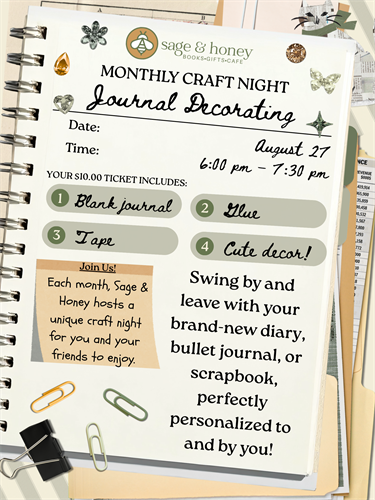 sage & honey
BOOKS•GIFTS•CAFE
MONTHLY CRAFT NIGHT
Journal Decorating
Date: August 27
Time: 6:00 pm – 7:30 pm
YOUR $10.00 TICKET INCLUDES:
1 Blank journal
2 Glue
3 Tape
4 Cute decor!
Join Us!
Each month, Sage &
Honey hosts a
unique craft night
for you and your
friends to enjoy.
Swing by and
leave with your
brand-new diary,
bullet journal, or
scrapbook,
perfectly
personalized to
and by you!